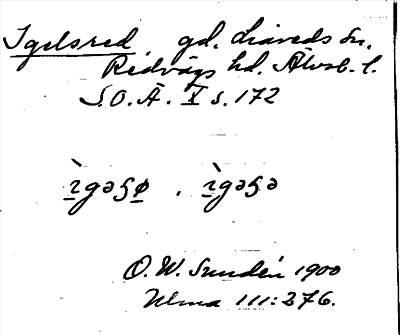 Igelsred gd. Liareds sn,
Redvägs hd. Älvsb. l.
S.O.Ä. X s. 172
ı̀gəʂø . ı̀gəʂə
O. W. Sundén 1900
Ulma 111:276.